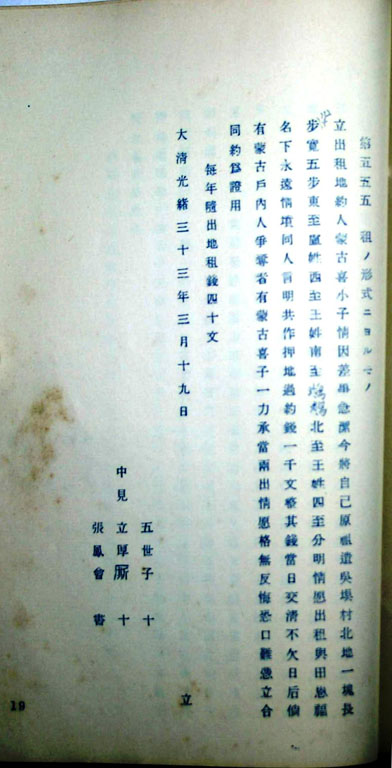 第五五五 租ノ形式ニヨルモノ
立出租地約人蒙古喜小子情因差事急迫今將自己原租遺吳壩村北地一塊長
步寬五步東至盧姓西至王姓南至 北至王姓四至分明情愿出租與田恩福
名下永遠情項同人言明共作押地過約錢一千文整其錢當日交清不欠日后倘
有蒙古戶內人爭奪者有蒙古喜子一力承當兩出情愿格無反悔恐口難憑立合
同約爲證用
每年隨出地租錢四十文
大清光緒三十三年三月十九日 立
五世子 十
中見 立厚 十
張鳳會 書
19